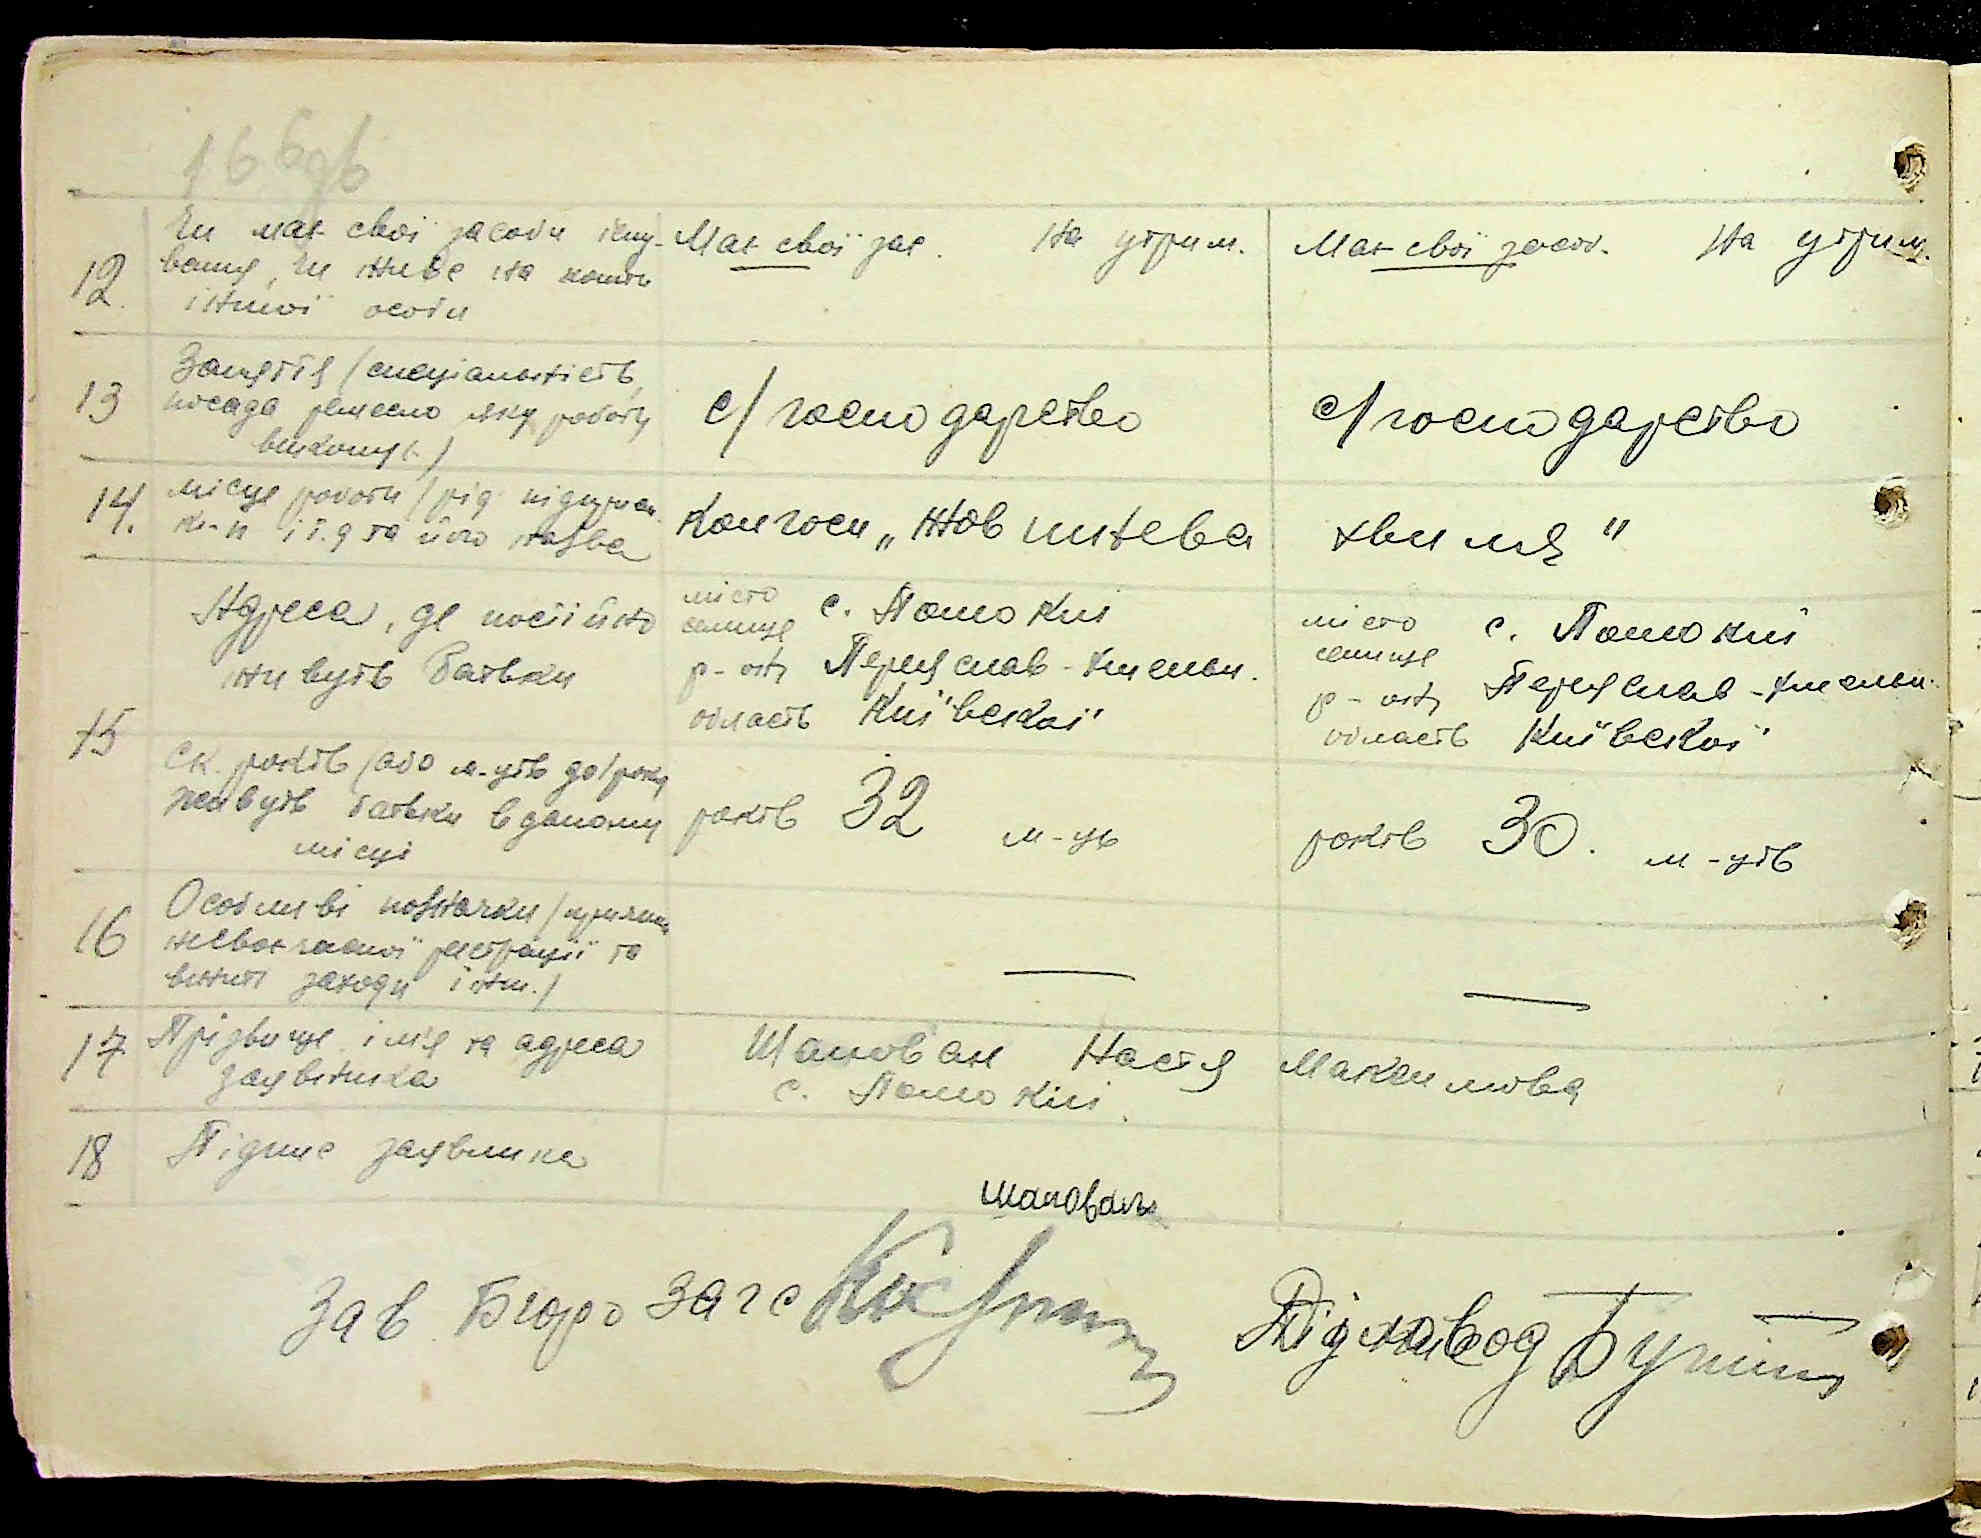 12. Чи має свої засоби існу-
вання, чи живе на кошти
іншої особи
Має свої зас. На утрим.
Має свої засоб. На утрим.
13 Заняття (спеціальність,
посада ремесло яку роботу
виконує)
с/господарство
с/господарство
14. Місце роботи (рід підприєм.
і т.д та його назва
Колгосп „Жовтнева
хвиля"
15 Адреса, де постійно
живуть батьки
місто
селище с. Помокли
р-ну Переяслав-Хмельн.
область Київської
місто
селище с. Помокли
р-ну Переяслав-Хмельн.
область Київської
Ск. років (або м-ців до 1 року
живуть батьки в даному
місці
років 32 м-ців
років 30. м-ців
16 Особливі позначки (причина
несвоєчасної реєстрації та
вжиті заходи і інш.)
—
—
17 Прізвище ім'я та адреса
заявника
Шаповал Настя Максимовна
с. Помокли.
18 Підпис заявника
Шаповаль
Зав. Бюро загс
Діловод